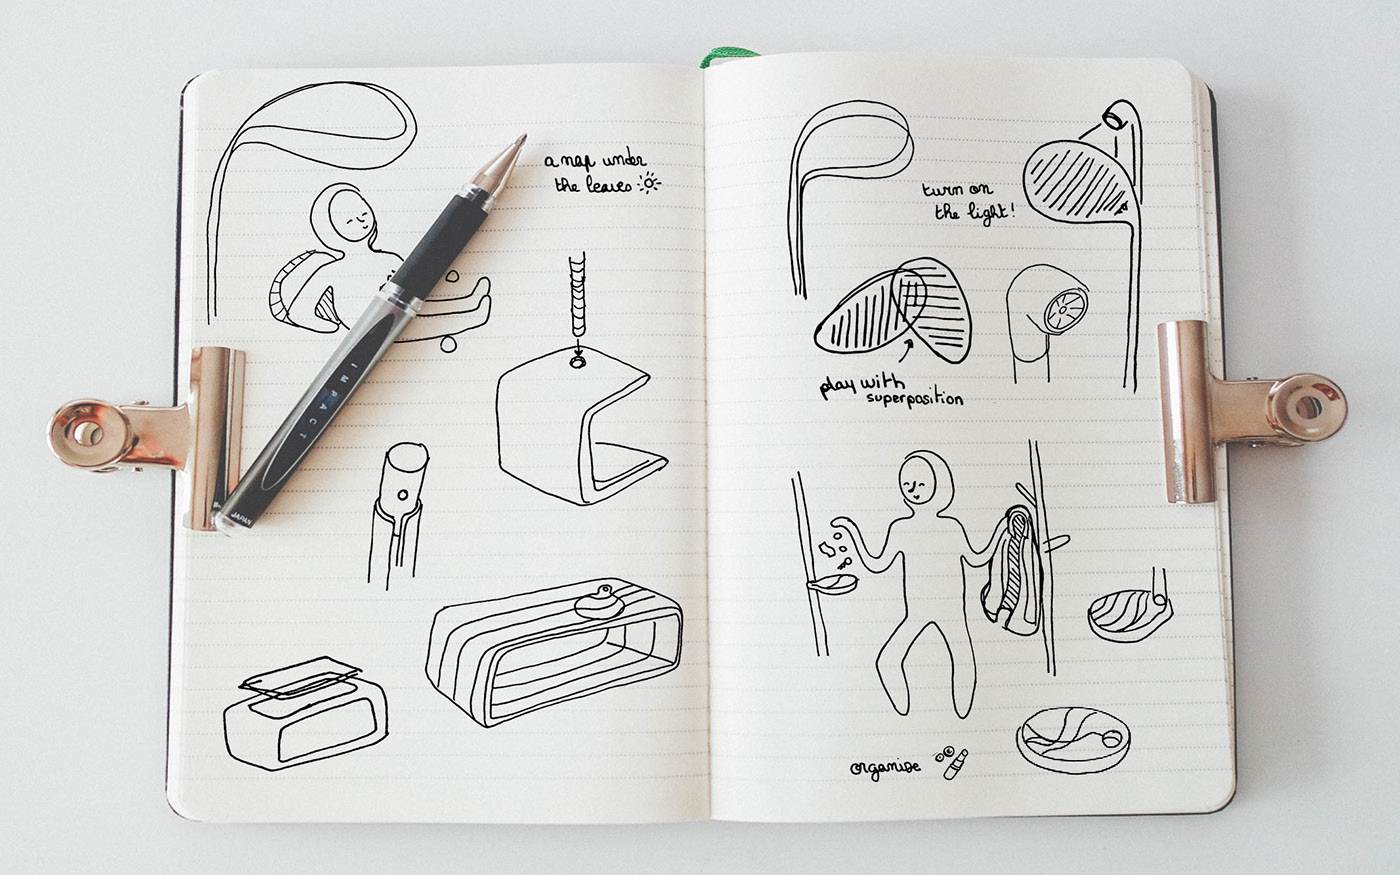 a nap under
the leaves
IMPACT
JAPAN
turn on
the light!
play with
superposition
organise